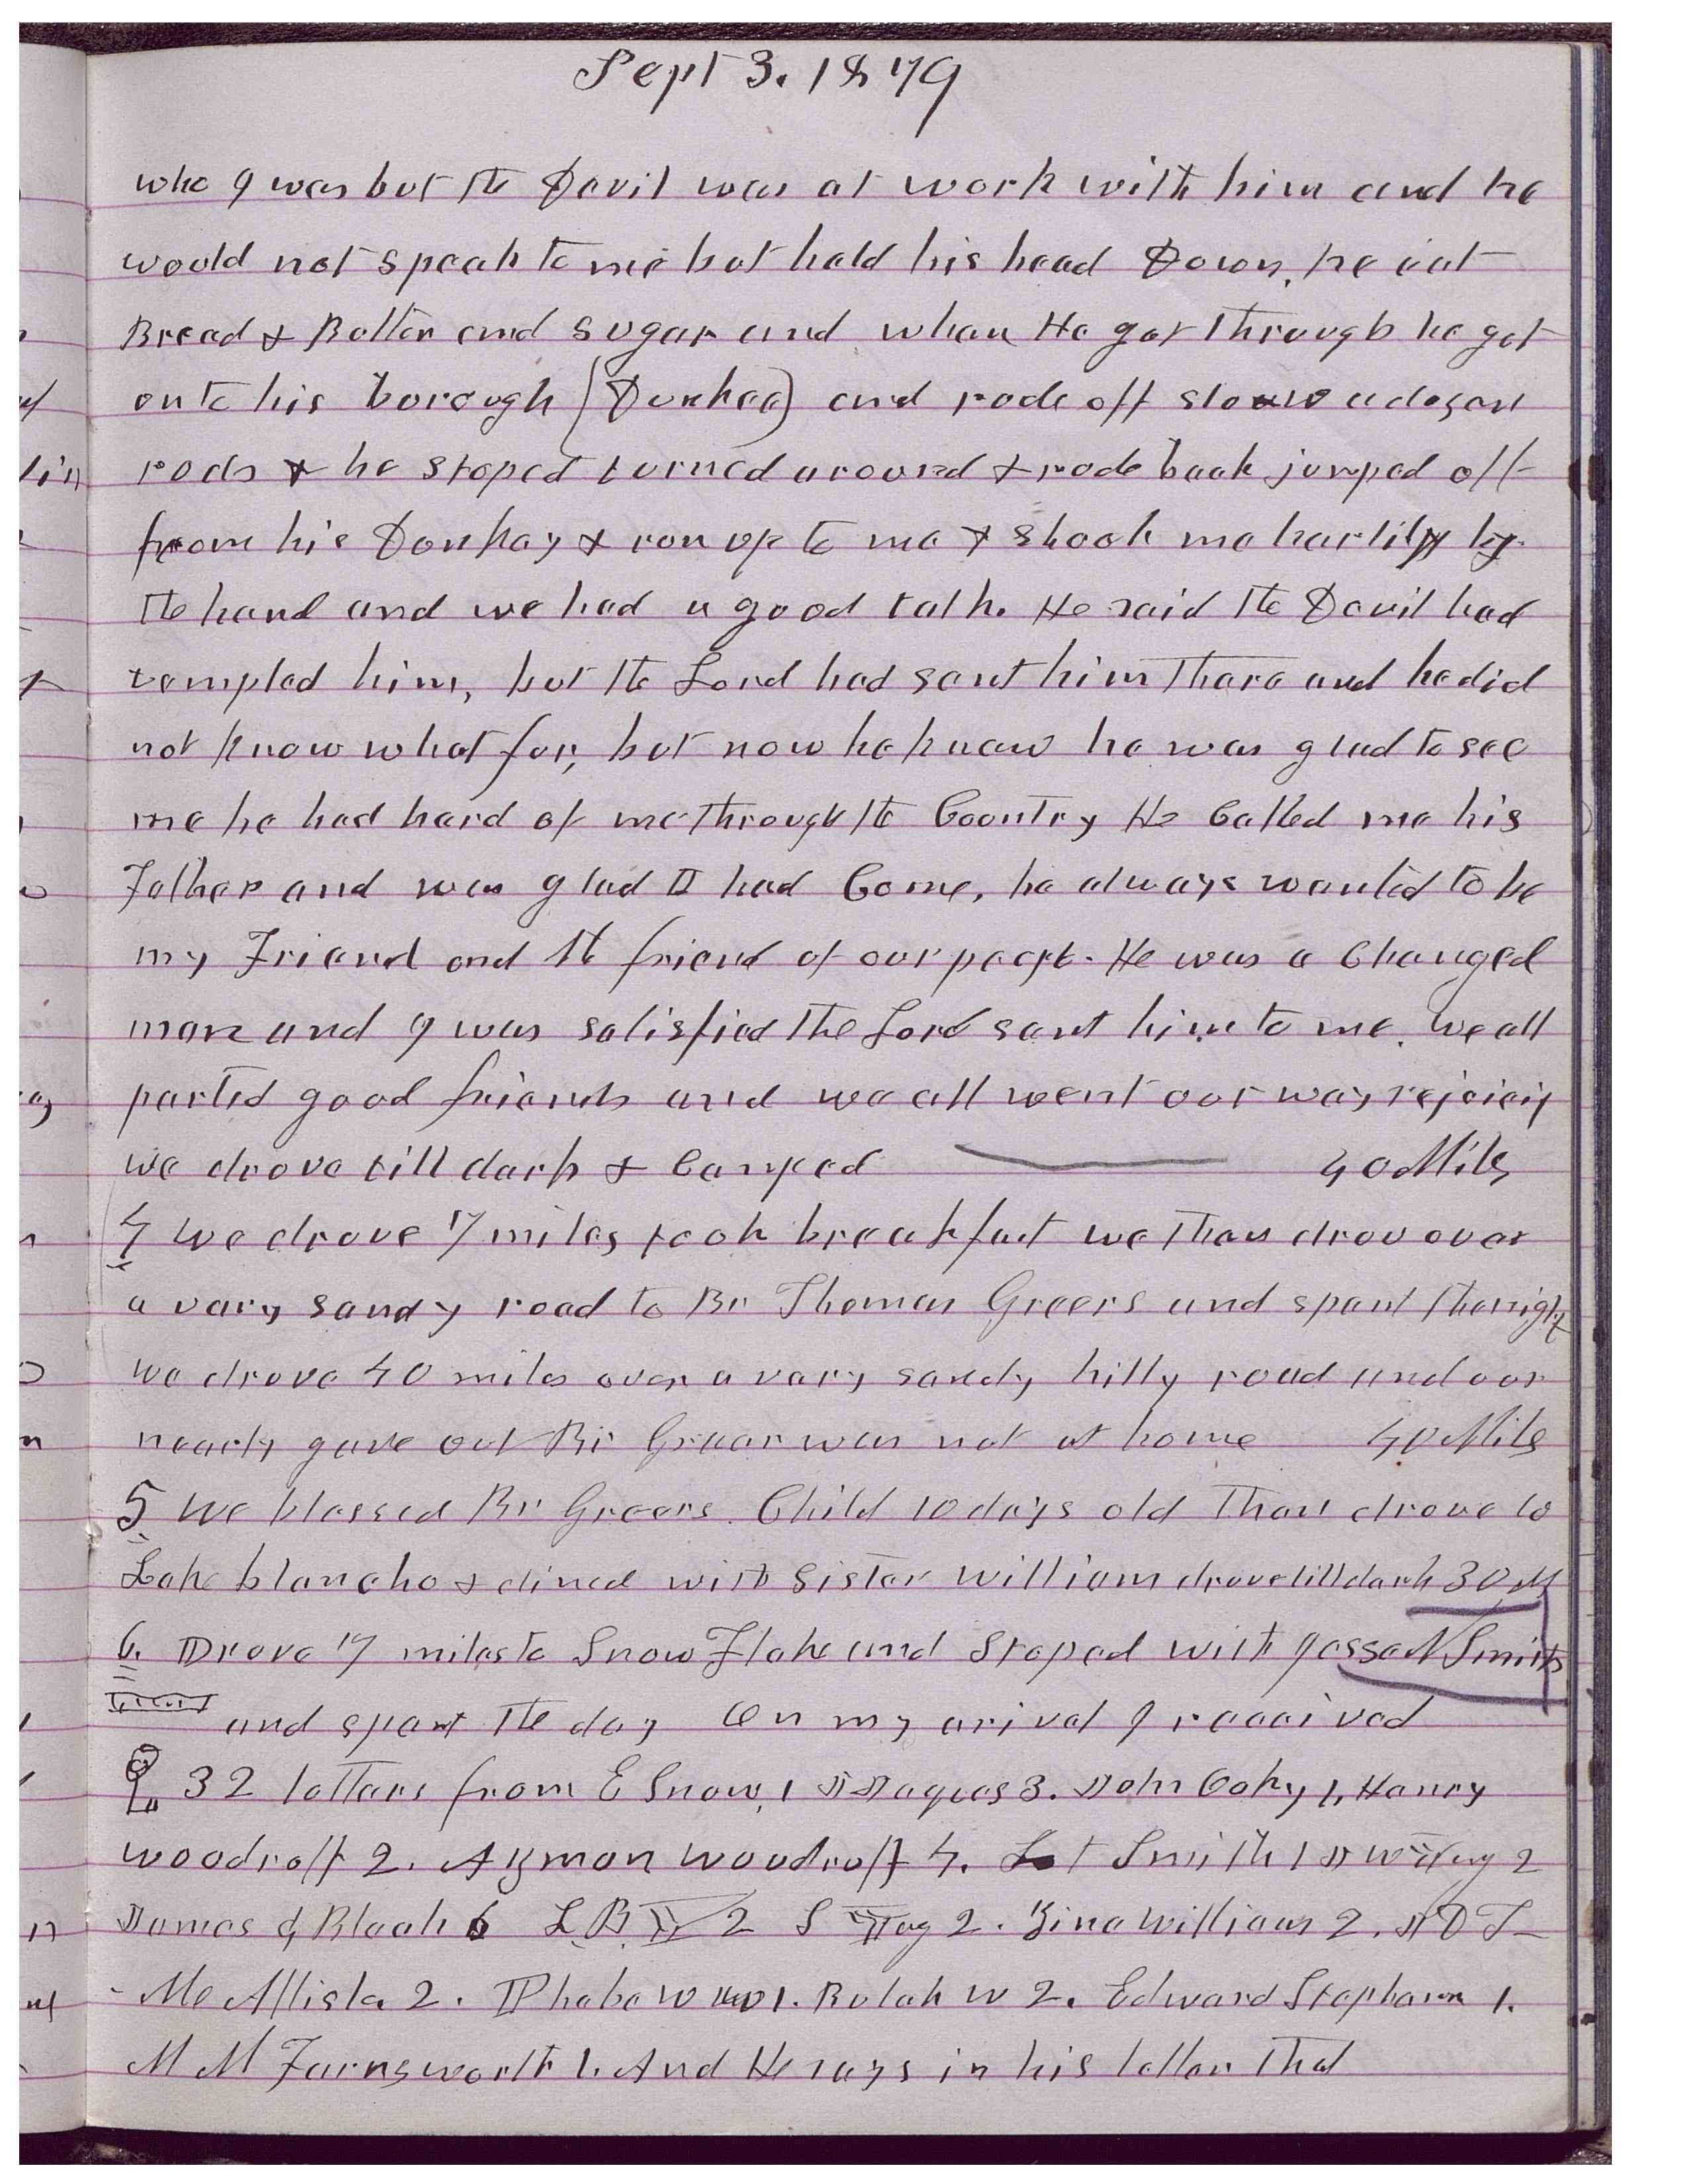 Sept 3. 1879
who I was but the Devil was at work with him and he
would not speak to me but held his head Down. he eat
Bread & Butter and sugar and when He got through he got
onto his borough (Donkee) and rode off slow a dozen
rods & he stoped turned around & rode back jumped off
from his Donkey & run up to me & shook me hartily by
the hand and we had a good talk. He said the Devil had
tempted him, but the Lord had sent him there and he did
not know what for, but now he knew he was glad to see
me he had heard of me through the Country He Called me his
Father and was glad I had Come, he always wanted to be
my Friend and the friend of our people. He was a Changed
man and I was satisfied the Lord sent him to me. we all
parted good friends and we all went our way rejoicing
we drove till dark & Camped 40 Miles
4 we drove 7 miles took breakfast we then drov over
a very sandy road to Br Thomas Greers and spent the night
we drove 40 miles over a very sandy hilly road and our
nearly gave out Br Greer was not at home 40 Miles
5 we blessed Br Greers Child 10 days old then drove to
Lake blancho & dined with Sister William drove till dark 30 M
6. Drove 7 miles to Snow Flake and Stoped with Jesse N Smith
and spent the day On my arival I received
32 letters from E Snow, 1 J Jaques 3. John Coky 1, Henry
Woodruff 2. Azmon Woodruff 4. Lot Smith 1 J W Young 2
James G Bleak 6 L B Y 2 S Young 2. Zina Williams 2. J D T
McAllister 2. Phebe W 1. Bulah W 2. Edward Stephenson 1.
M M Farnsworth 1. And He says in his letter that